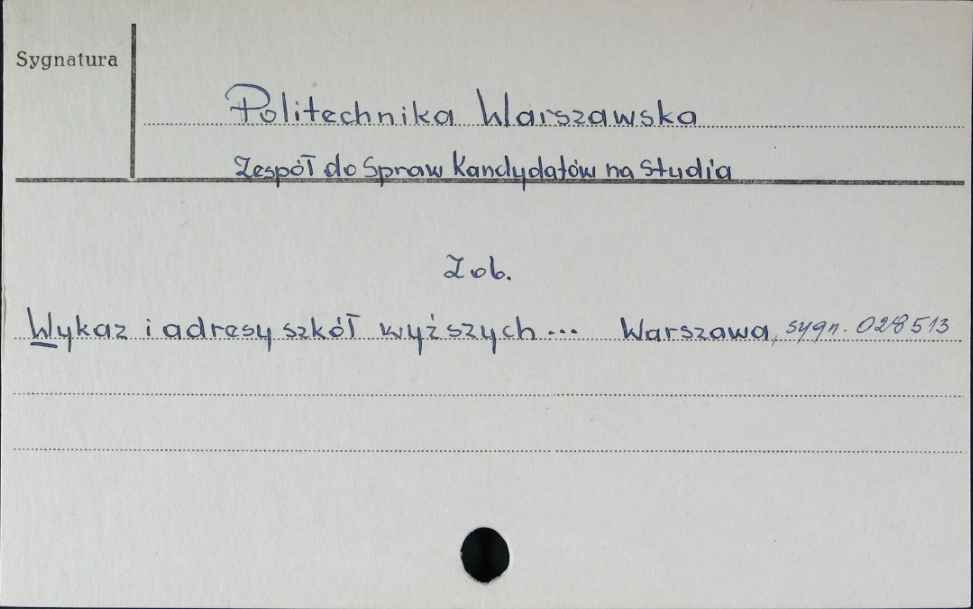 Sygnatura
Politechnika Warszawska
Zespół do Spraw Kandydatów na Studia
Zob.
Wykaz i adresy szkół wyższych... Warszawa, sygn. 028513